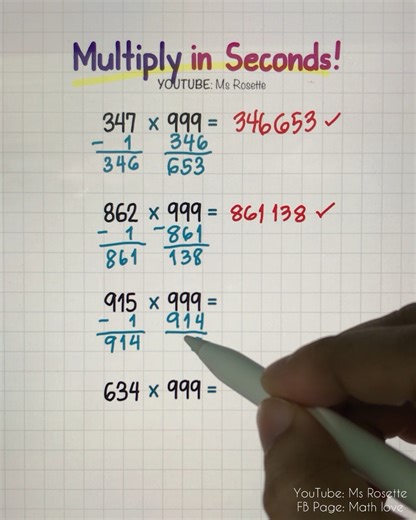 Multiply in Seconds!
YOUTUBE: Ms Rosette
347 x 999 = 346653 ✓
- 1 346
346 653
862 x 999 = 861138 ✓
- 1 -861
861 138
915 x 999 =
- 1 914
914
634 x 999 =
YouTube: Ms Rosette
FB Page: Math love